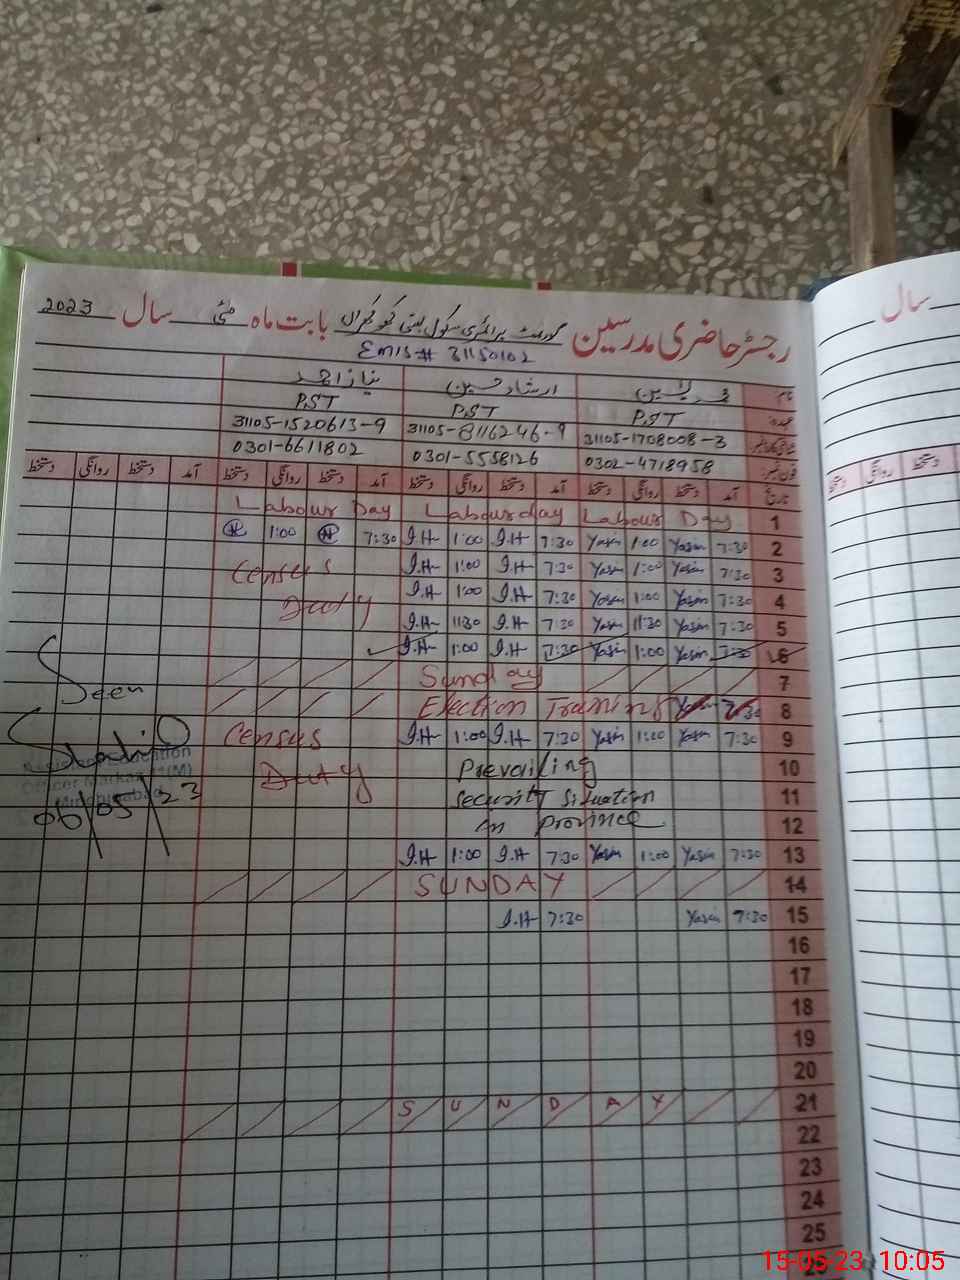 رجسٹر حاضری مدرسین گورنمنٹ پرائمری سکول بستی بابت ماہ مئی سال 2023
سال
Emis# 31150102
نام محمد یٰسین ارشاد حسین نیاز احمد
عہدہ PST PST PST
31105-1708008-3 31105-8116246-9 31105-1520613-9
فون نمبر 0302-4718958 0301-5558126 0301-6611802
تاریخ آمد دستخط روانگی دستخط آمد دستخط روانگی دستخط آمد دستخط روانگی دستخط آمد دستخط روانگی دستخط
دستخط روانگی دستخط
1 Labour Day Labour day Labour Day
2 7:30 Yasin 1:00 Yasin 7:30 I.H 1:00 I.H 7:30 1:00
3 7:30 Yasin 1:00 Yasin 7:30 I.H 1:00 I.H Census
4 7:30 Yasin 1:00 Yasin 7:30 I.H 1:00 I.H Duty
5 7:30 Yasin 11:30 Yasin 7:30 I.H 11:30 I.H
6 7:30 Yasin 1:00 Yasin 7:30 I.H 1:00 I.H
7 Sunday
Seen
8 Election Training Yasin 7:30
9 7:30 Yasin 1:00 Yasin 7:30 I.H 1:00 I.H Census
10 Prevailing Duty
11 Security Situation
12 in Province
06/05/23
13 7:30 Yasin 1:00 Yasin 7:30 I.H 1:00 I.H
14 SUNDAY
15 7:30 Yasin 7:30 I.H
16
17
18
19
20
21 SUNDAY
22
23
24
25
15-05-23 10:05